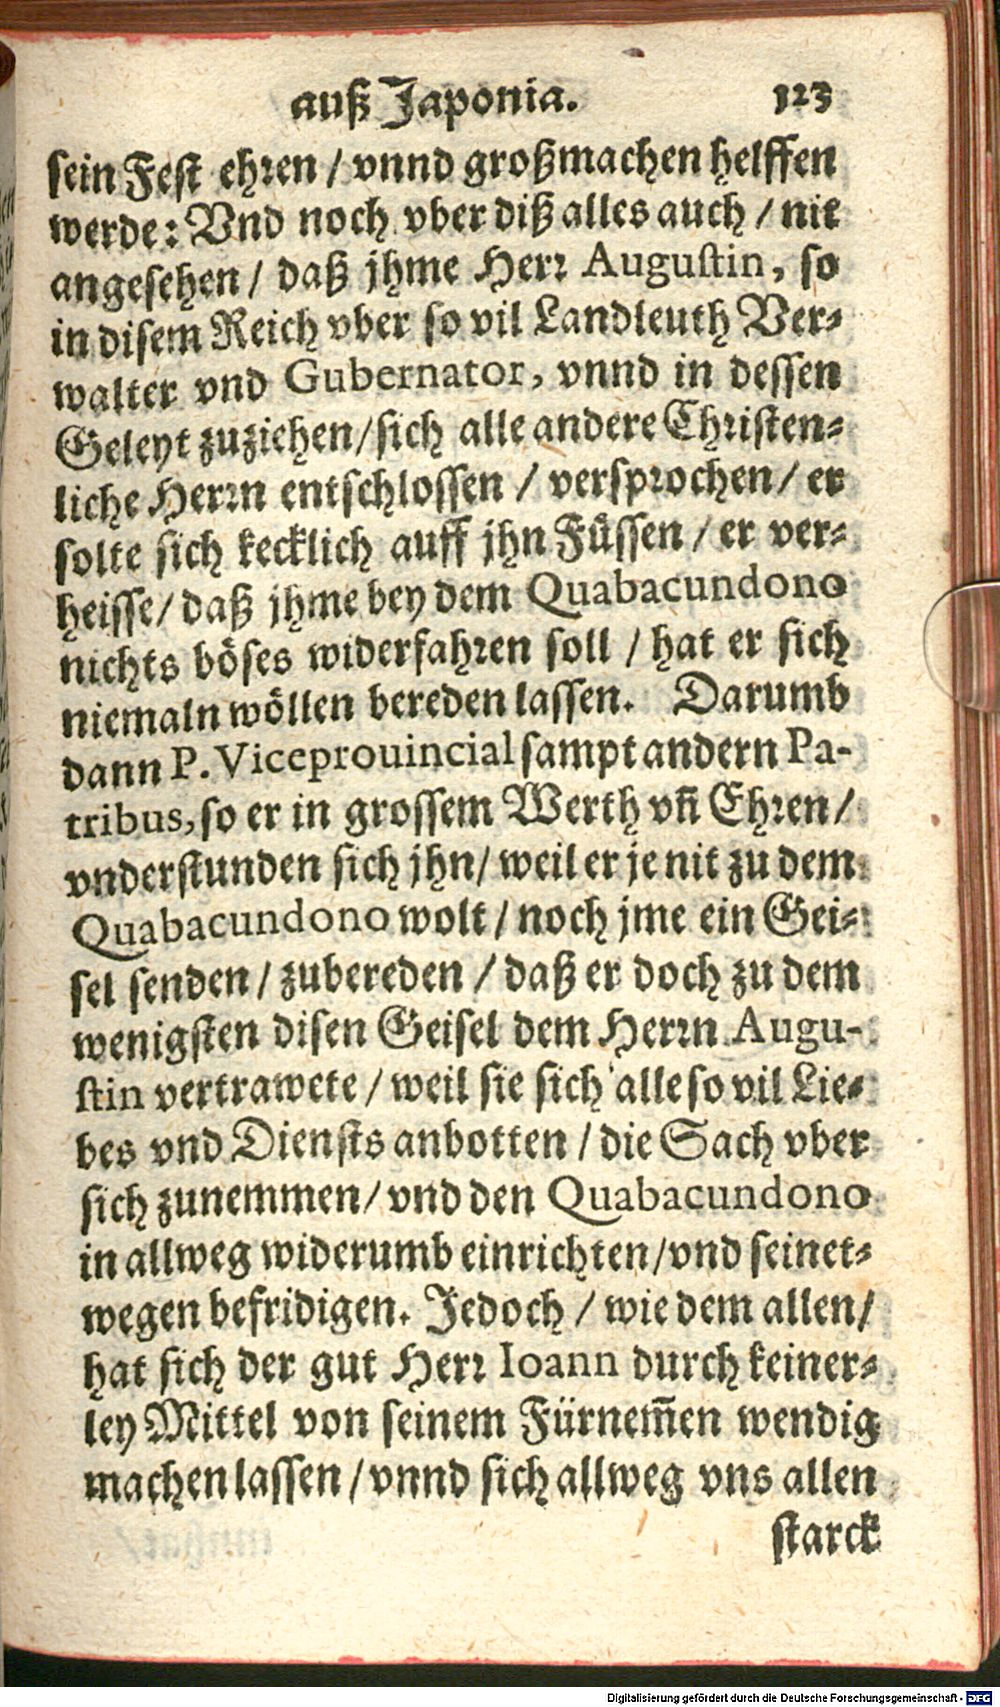 auß Japonia. 123
sein Fest ehren / vnnd großmachen helffen
werde: Vnd noch vber diß alles auch / nie
angesehen / daß jhme Herr Augustin, so
in disem Reich vber so vil Landleuth Ver-
walter vnd Gubernator, vnnd in dessen
Geleyt zuziehen / sich alle andere Christen-
liche Herrn entschlossen / versprochen / er
solte sich kecklich auff jhn Füssen / er ver-
heisse / daß jhme bey dem Quabacundono
nichts böses widerfahren soll / hat er sich
niemaln wöllen bereden lassen. Darumb
dann P. Viceprouincial sampt andern Pa-
tribus, so er in grossem Werth vñ Ehren /
vnderstunden sich jhn / weil er je nit zu dem
Quabacundono wolt / noch jme ein Gei-
sel senden / zubereden / daß er doch zu dem
wenigsten disen Geisel dem Herrn Augu-
stin vertrawete / weil sie sich alle so vil Lie-
bes vnd Diensts anbotten / die Sach vber
sich zunemmen / vnd den Quabacundono
in allweg widerumb einrichten / vnd seinet-
wegen befridigen. Jedoch / wie dem allen /
hat sich der gut Herr Ioann durch keiner-
ley Mittel von seinem Fürnem̃en wendig
machen lassen / vnnd sich allweg vns allen
starck
Digitalisierung gefördert durch die Deutsche Forschungsgemeinschaft - DFG